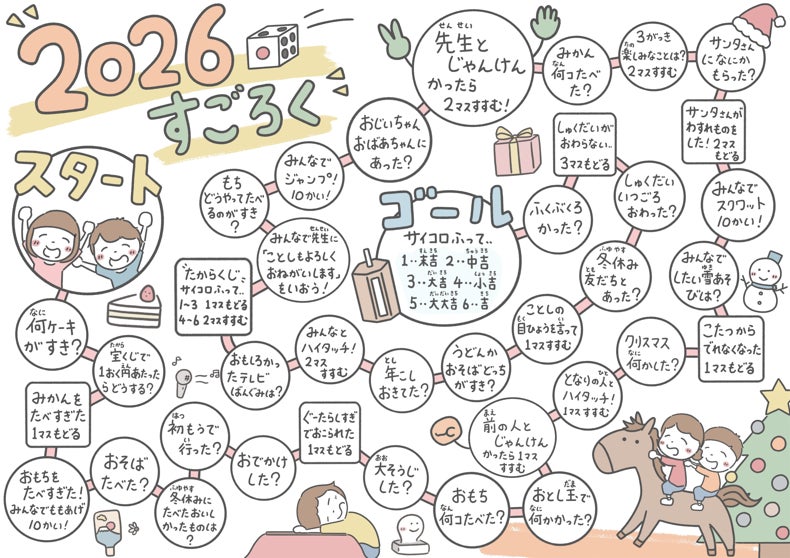 2026
すごろく
スタート
なに
何ケーキ
がすき?
たから
宝くじで
1おく円あたった
らどうする?
みかんを
たべすぎた
1マスもどる
おもちを
たべすぎた!
みんなでももあげ
10かい!
おそば
たべた?
ふゆやす
冬休みに
たべたおいし
かったものは
?
はつ
初もうで
行った?
おでかけ
した?
ぐーたらしすぎ
ておこられた
1マスもどる
おお
大そうじ
した?
おもち
なん
何コたべた?
だま
おとし玉で
なに
何かかった?
まえ
前の人と
じゃんけん
かったら1マス
すすむ
ひと
となりの人と
ハイタッチ!
1マスすすむ
クリスマス
なに
何かした?
こたつから
でれなくなった
1マスもどる
みんなで
ゆき
したい雪あそ
びは?
みんなで
スクワット
10かい!
サンタさんが
わすれものを
した! 2マス
もどる
サンタさん
になにか
もらった?
3がっき
たの
楽しみなことは?
2マスすすむ
みかん
なん
何コたべた
?
せんせい
先生と
じゃんけん
かったら
2マスすすむ!
おじいちゃん
おばあちゃんに
あった?
みんなで
ジャンプ!
10かい!
もち
どうやってたべ
るのがすき
?
せんせい
みんなで先生に
「ことしもよろしく
おねがいします」
をいおう!
「たからくじ」
サイコロふって、、
1~3 1マスもどる
4~6 2マスすすむ
おもしろかっ
たテレビ
ばんぐみは?
みんなと
ハイタッチ!
2マス
すすむ
とし
年こし
おきてた?
うどんか
おそばどっち
がすき?
ことしの
もく い
目ひょうを言って
1マスすすむ
ふゆやす
冬休み
とも
友だちと
あった?
しゅくだい
いつごろ
おわった?
しゅくだいが
おわらない、、
3マスもどる
ふくぶくろ
かった?
ゴール
サイコロふって、、
すえきち ちゅうきち
1‥末吉 2‥中吉
だいきち しょうきち
3‥大吉 4‥小吉
だいだいきち きち
5‥大大吉 6‥吉